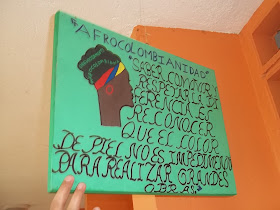 "AFROCOLOMBIANIDAD"
"SABER CONVIVIR Y
RESPETAR LA DI
FERENCIA ES
RECONOCER
QUE EL COLOR
DE PIEL NO ES IMPEDIMENTO
PARA REALIZAR GRANDES
OBRAS"